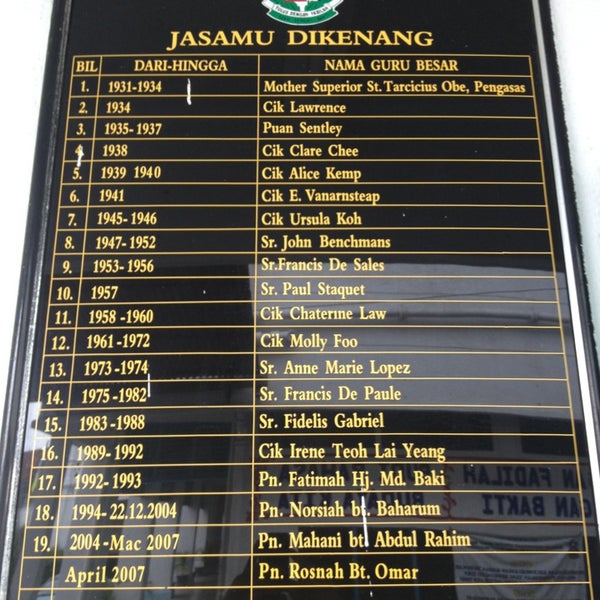 JASAMU DIKENANG
BIL DARI-HINGGA NAMA GURU BESAR
1. 1931-1934 Mother Superior St. Tarcicius Obe, Pengasas
2. 1934 Cik Lawrence
3. 1935-1937 Puan Sentley
4. 1938 Cik Clare Chee
5. 1939 1940 Cik Alice Kemp
6. 1941 Cik E. Vanarnsteap
7. 1945-1946 Cik Ursula Koh
8. 1947-1952 Sr. John Benchmans
9. 1953-1956 Sr.Francis De Sales
10. 1957 Sr. Paul Staquet
11. 1958-1960 Cik Chaterine Law
12. 1961-1972 Cik Molly Foo
13. 1973-1974 Sr. Anne Marie Lopez
14. 1975-1982 Sr. Francis De Paule
15. 1983-1988 Sr. Fidelis Gabriel
16. 1989-1992 Cik Irene Teoh Lai Yeang
17. 1992-1993 Pn. Fatimah Hj. Md. Baki
18. 1994-22.12.2004 Pn. Norsiah bt. Baharum
19. 2004-Mac 2007 Pn. Mahani bt. Abdul Rahim
April 2007 Pn. Rosnah Bt. Omar